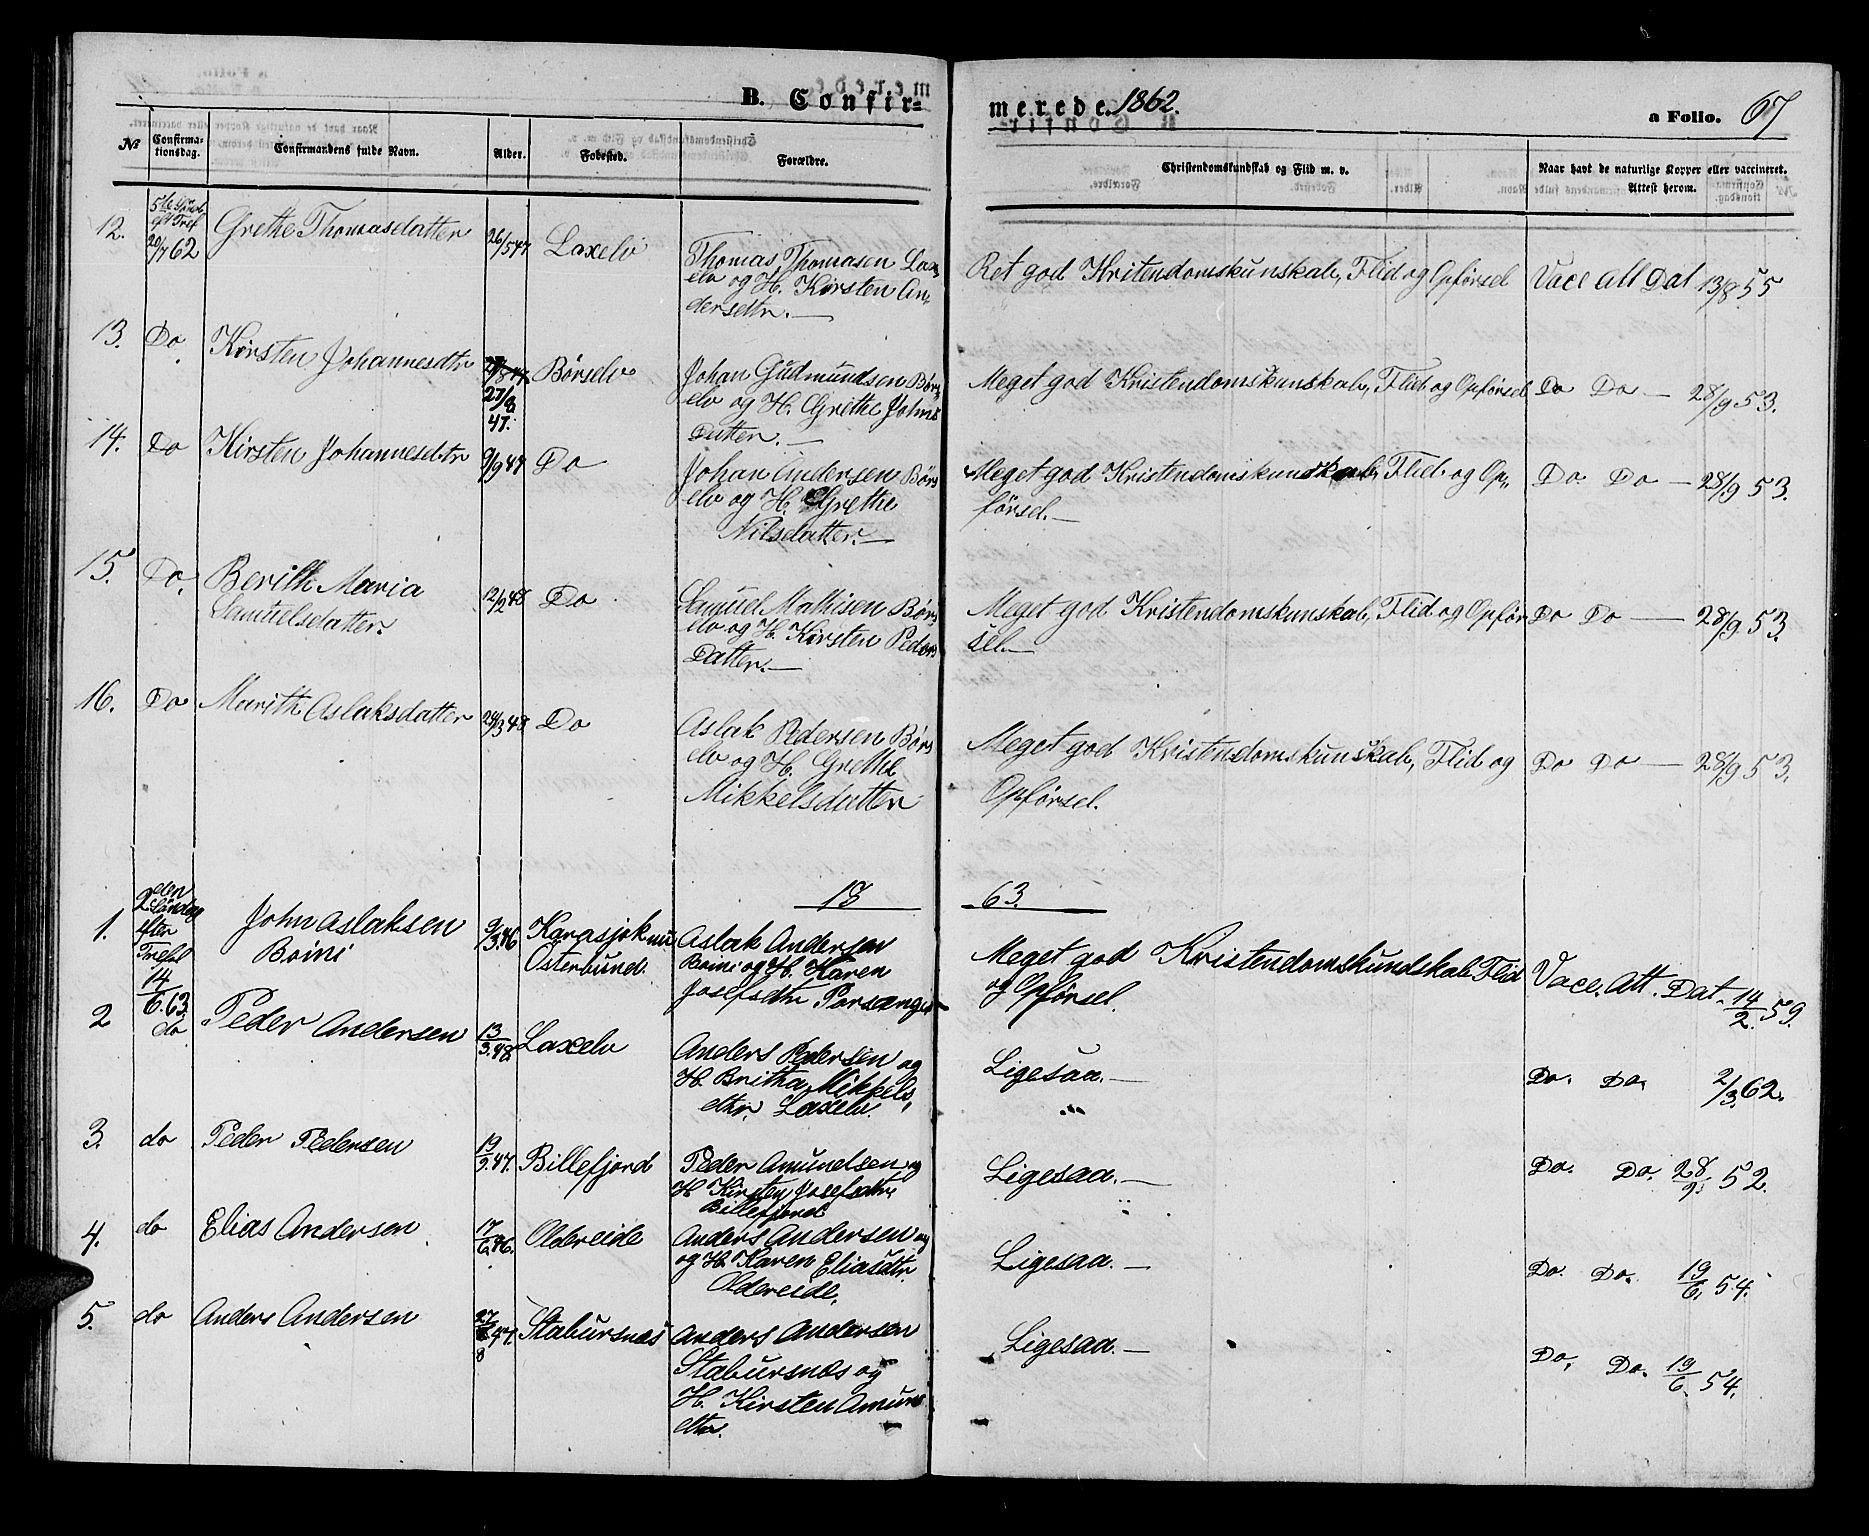 B. Confir=
merede. 1862.
a Folio. 67
№
Confirma-
tionsdag.
Confirmandens fulde Navn.
Alder.
Fødested.
Forældre.
Christendomskundskab og Flid m. v.
Naar havt de naturlige Kopper eller vaccineret.
Attest herom.
12.
5te Sönd.
eft Tref
20/7 62
Grethe Thomasdatter
26/5 47
Laxelv
Thomas Thomasen Lax
elv og H. Kirsten An-
dersdtr.—
Ret god Kristendomskunskab, Flid og Opførsel
Vacc Att Dat 13/8 55
13.
Do
Kirsten Johannesdtr
27/8
47.
Børselv
Johan Gudmundsen Børs
elv og H. Grethe Johns
Datter.—
Meget god Kristendomskunskab, Flid og Opførsel
Do Do — 28/9 53.
14.
Do
Kirsten Johannesdtr
9/9 47
Do
Johan Andersen Børs
elv og H. Grethe
Nilsdatter.—
Meget god Kristendomskunskab, Flid og Op-
førsel.—
Do Do — 28/9 53.
15.
Do,
Berith Maria
Samuelsdatter.
12/2 48
Do
Samuel Mathisen Børs
elv og H. Kirsten Peders
Datter.—
Meget god Kristendomskunskab, Flid og Opfør
sel.—
Do Do — 28/9 53.
16.
Do
Marith Aslaksdatter
28/3 48
Do
Aslak Pedersen Børs
elv og H. Grethe
Mikkelsdatter
Meget god Kristendomskunskab, Flid og
Opførsel.
Do Do — 28/9 53.
18 63.
1.
2den
Söndag
efter
Trefol
14/6. 63.
John Aslaksen
Boini
9/3. 46
Karasjok nu
Österbund.
Aslak Andersen
Boini og H. Karen
Josefsdtr Porsanger
Meget god Kristendomskundskab Flid
og Opførsel.
Vacc. Att. Dat. 14/2. 59.
2
do
Peder Andersen
13/3. 48.
Laxelv
Anders Pedersen og
H. Britha Mikkels,
dtr. Laxelv.
Ligesaa.—
Do. Do. 2/3. 62.
3.
do
Peder Pedersen
19/9. 47.
Billefjord
Peder Amundsen og
H Kirsten Josefsdtr,
Billefjord
Ligesaa.—
Do. Do. 28/9. 52.
4.
do
Elias Andersen
17/6. 46.
Oldereide
Anders Andersen og
og H. Karen Eliasdtr.
Oldereide.
Ligesaa.—
Do. Do. 19/6. 54.
5.
do
Anders Andersen
27/8 47.
Stabursnæs
Anders Andersen
Stabursnæs og
H. Kirsten Amuns
dtr.
Ligesaa.—
Do, Do. 19/6. 54.